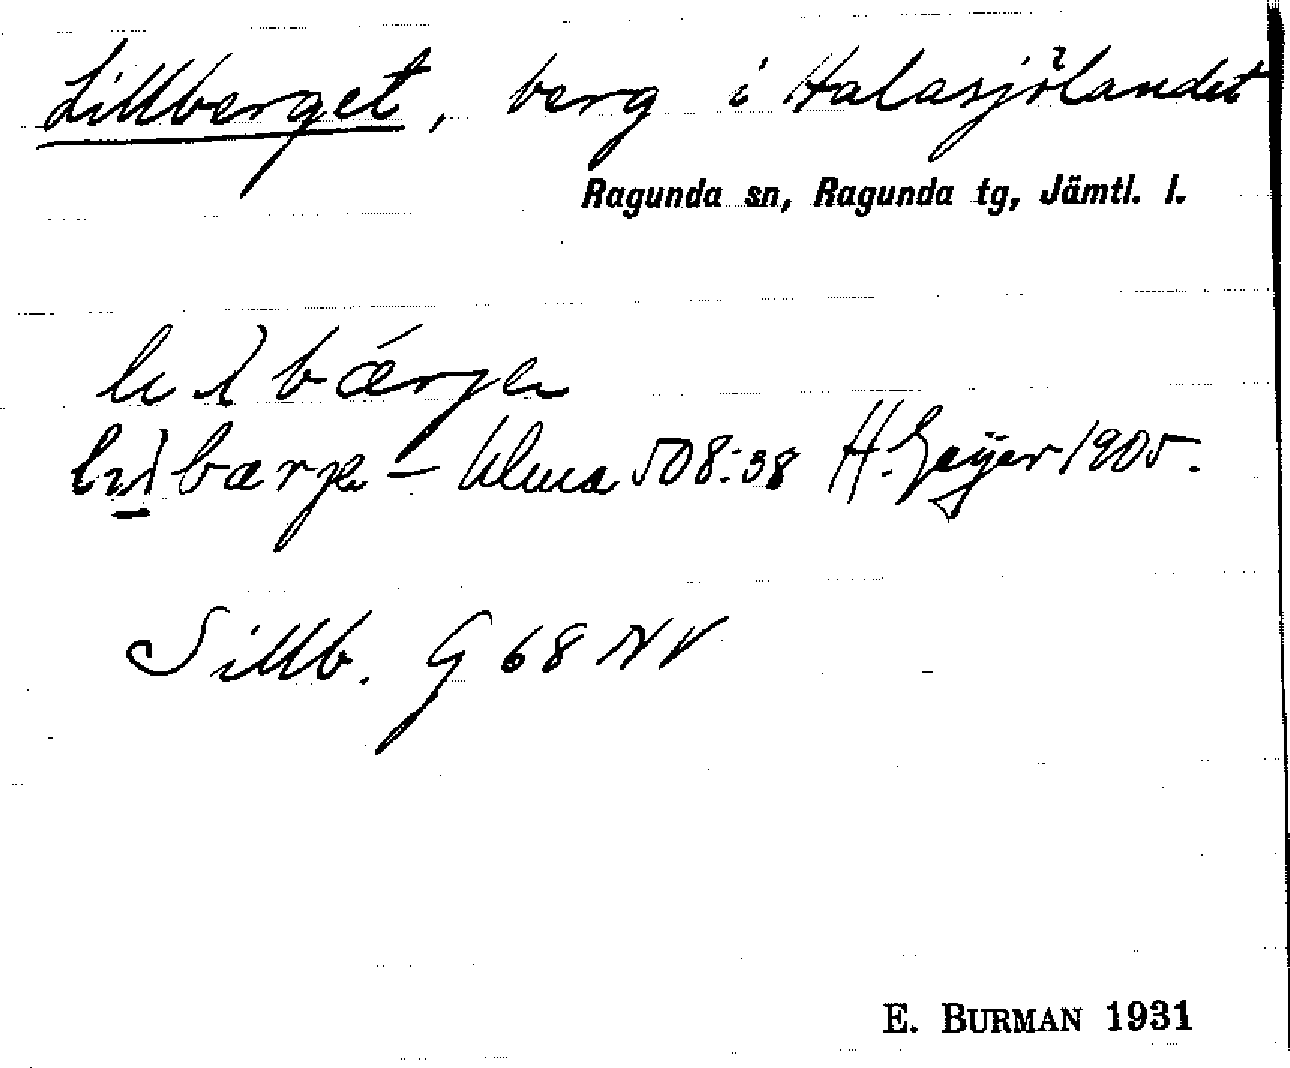 Lillberget, berg i Halasjölandet
Ragunda sn, Ragunda tg, Jämtl. l.
bærje – Ulma 508:38 H. Geijer 1905.
Lillb. G 68 NV
E. BURMAN 1931